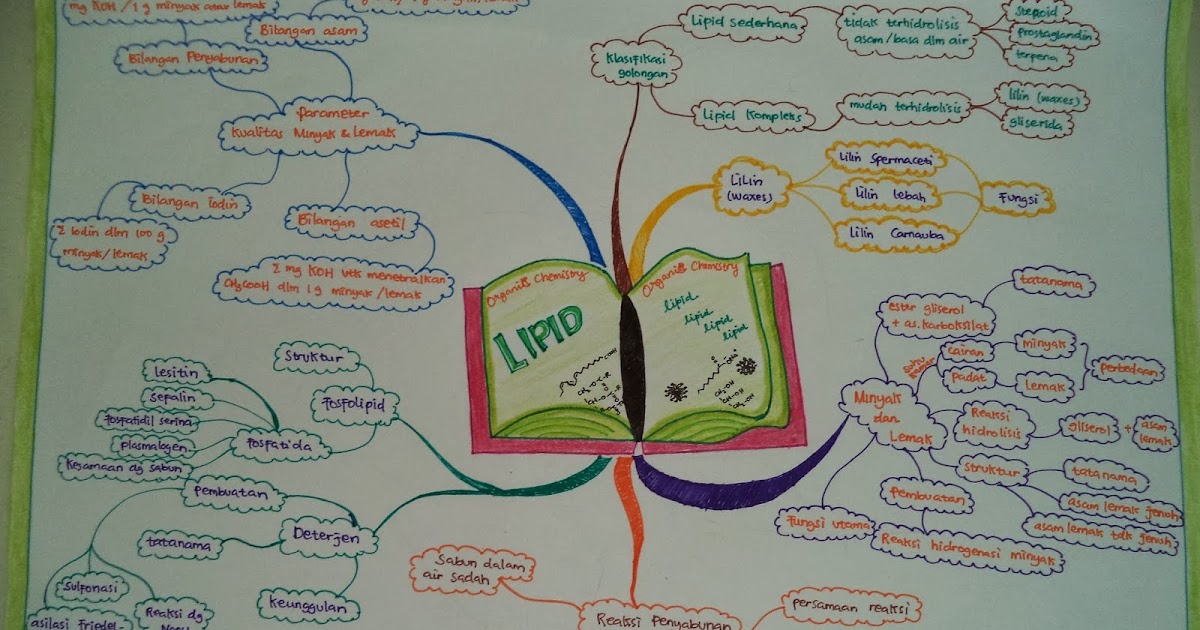 mg KOH / 1 g minyak atau lemak
Bilangan asam
Bilangan Penyabunan
parameter
Kualitas Minyak & Lemak
Bilangan Iodin
Σ Iodin dlm 100 g
minyak/lemak
Bilangan asetil
Σ mg KOH utk menetralkan
CH3COOH dlm 1 g minyak /lemak
Klasifikasi
golongan
Lipid sederhana
tidak terhidrolisis
asam/basa dlm air
steroid
prostaglandin
terpena
Lipid Kompleks
mudah terhidrolisis
lilin (waxes)
gliserida
LiLin
(waxes)
Lilin Spermaceti
Lilin lebah
Lilin Carnauba
Fungsi
Organic Chemistry
LIPID
Organic Chemistry
lipid
lipid
lipid
lipid
Struktur
Fosfolipid
lesitin
sefalin
Fosfatidil serina
plasmalogen
Kesamaan dg sabun
Fosfatida
pembuatan
Deterjen
tatanama
Sulfonasi
asilasi Friedel-
Reaksi dg
Keunggulan
ester gliserol
+ as. karboksilat
tatanama
suhu
cairan
minyak
padat
lemak
perbedaan
Minyak
dan
Lemak
Reaksi
hidrolisis
gliserol
+
asam
lemak
struktur
tatanama
asam lemak jenuh
asam lemak tdk jenuh
pembuatan
Reaksi hidrogenasi minyak
Fungsi utama
Sabun dalam
air sadah
Reaksi Penyabunan
persamaan reaksi